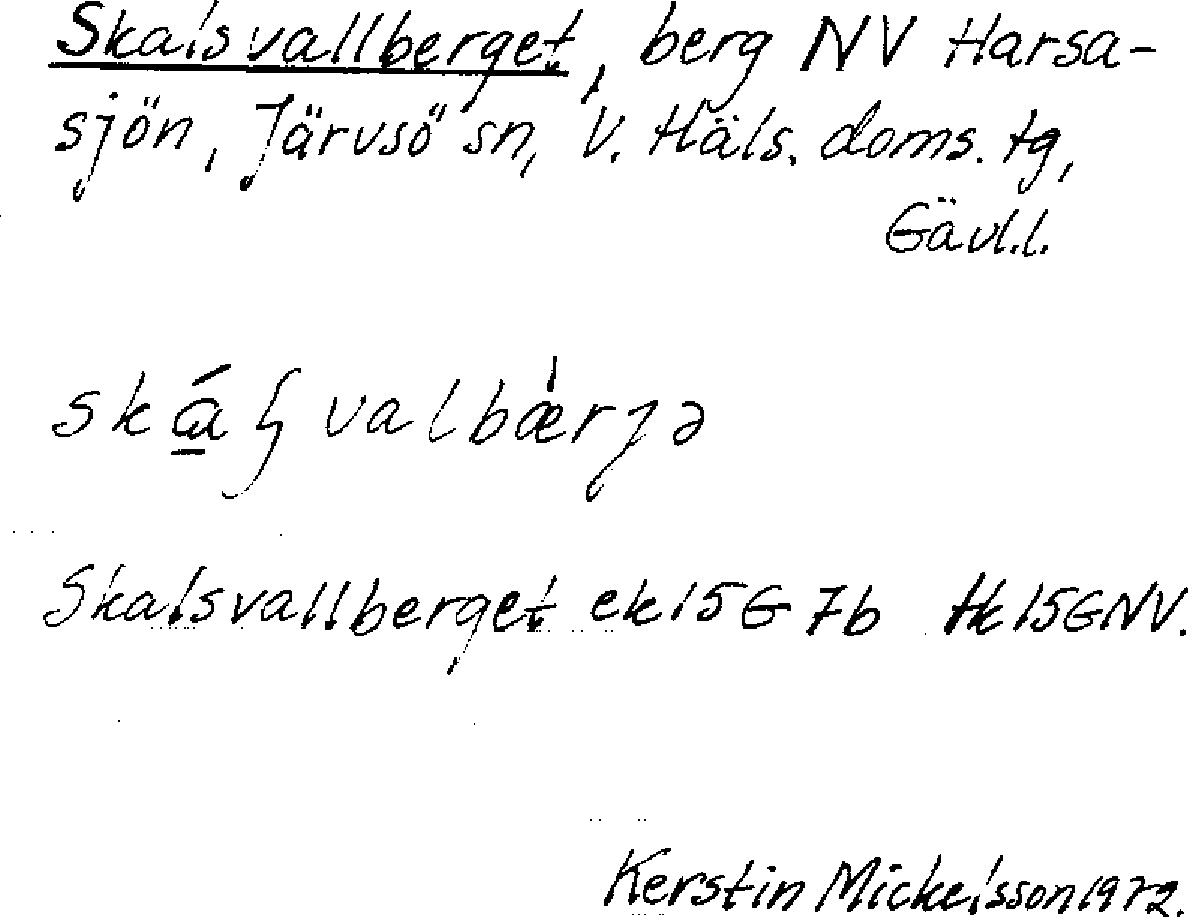 Skalsvallberget, berg NV Harsa-
sjön, Järvsö sn, V. Häls. doms. tg,
Gävl.l.
Skalsvallberget ek 15G 7b tk 15GNV.
Kerstin Mickelsson 1972.